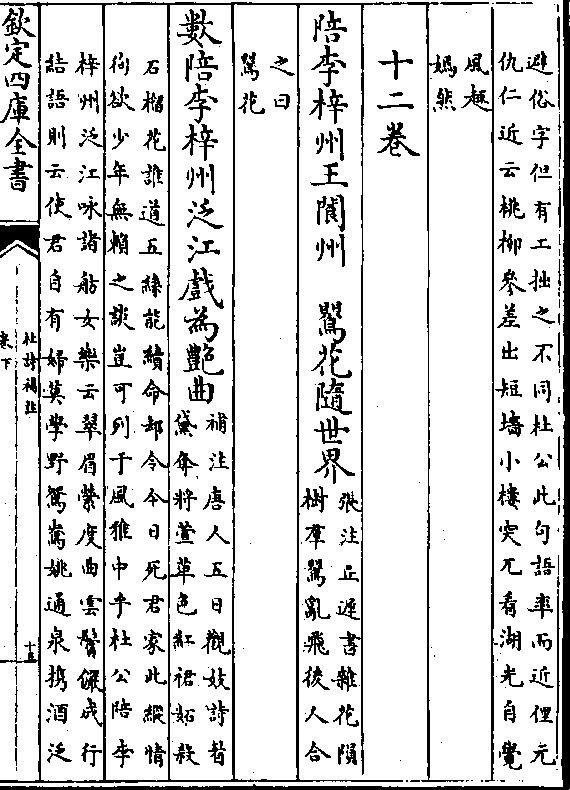 避俗字但有工拙之不同杜公此句語率而近俚元
仇仁近云桃柳參差出短墻小樓突兀看湖光自覺
風趣
嫣然
十二卷
陪李梓州王閬州　鶯花隨世界
張注丘遲書雜花隕
樹羣鶯亂飛後人合
之曰
鶯花
數陪李梓州泛江戲為艶曲
補注唐人五日觀妓詩眉
黛奪將萱草色紅裙妬殺
石榴花誰道五絲能續命却令今日死君家此縱情
狥欲少年無賴之談豈可列于風雅中乎杜公陪李
梓州泛江咏諸舫女樂云翠眉縈度曲雲鬢儼成行
結語則云使君自有婦莫學野鴛鴦姚通泉携酒泛
欽定四庫全書
杜詩攟註
卷下
十五